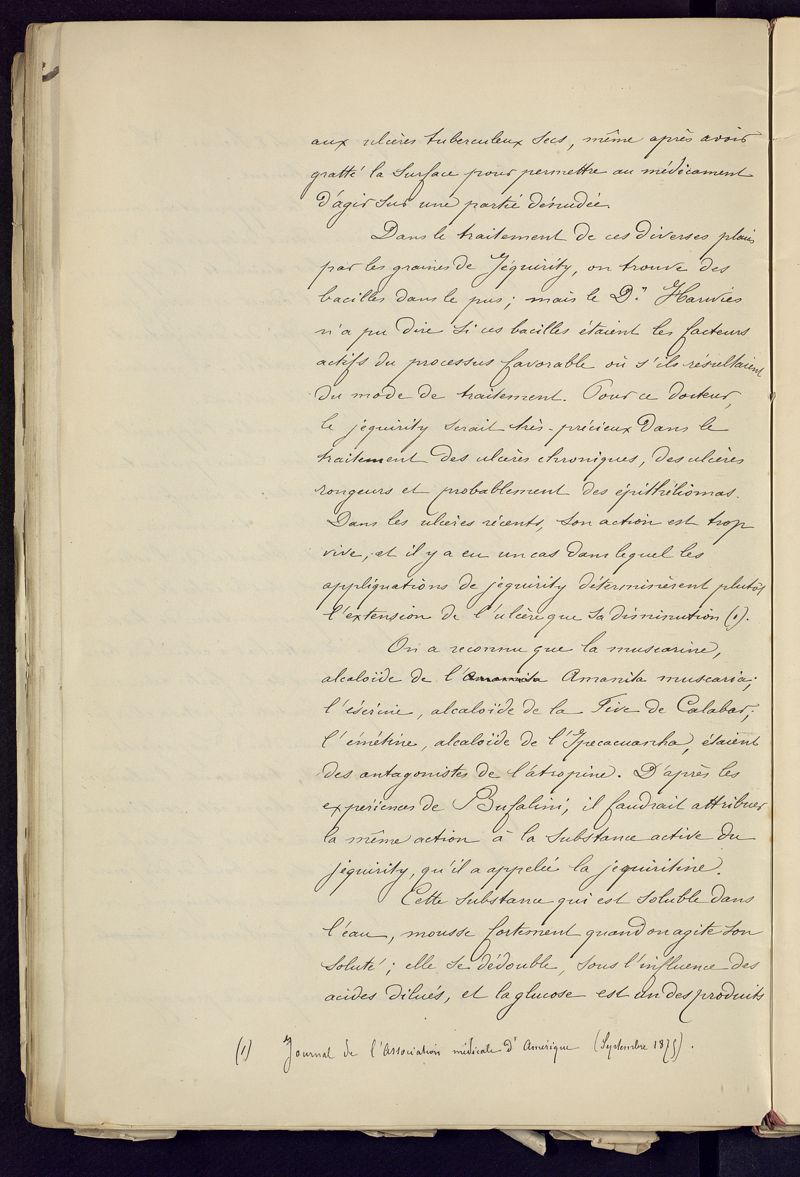 aux ulcères tuberculeux secs, même après avoir
gratté la surface pour permettre au médicament
d'agir sur une partie dénudée.
Dans le traitement de ces diverses plaies
par les graines de Jéquirity, on trouve des
bacilles dans le pus ; mais le Dr Harwies
n'a pu dire si ces bacilles étaient les facteurs
actifs du processus favorable où s'ils résultaient
du mode de traitement. Pour ce docteur,
le jequirity serait très-précieux dans le
traitement des ulcères chroniques, des ulcères
rongeurs et probablement des épithéliomas.
Dans les ulcères récents, son action est trop
vive, et il y a eu un cas dans lequel les
appliquations de jequirity déterminèrent plutôt
l'extension de l'ulcère que sa diminution (1).
On a reconnu que la muscarine,
alcaloïde de l'Amanita muscaria ;
l'ésérine, alcaloïde de la Fève de Calabar ;
l'émétine, alcaloïde de l'Ipecacuanha, étaient
des antagonistes de l'atropine. D'après les
expériences de Bufalini, il faudrait attribuer
la même action à la substance active du
jéquirity, qu'il a appelée la jequiritine.
Cette substance qui est soluble dans
l'eau, mousse fortement quand on agite son
soluté ; elle se dédouble, sous l'influence des
acides dilués, et la glucose est un des produits
(1) Journal de l'Association médicale d'Amérique (Septembre